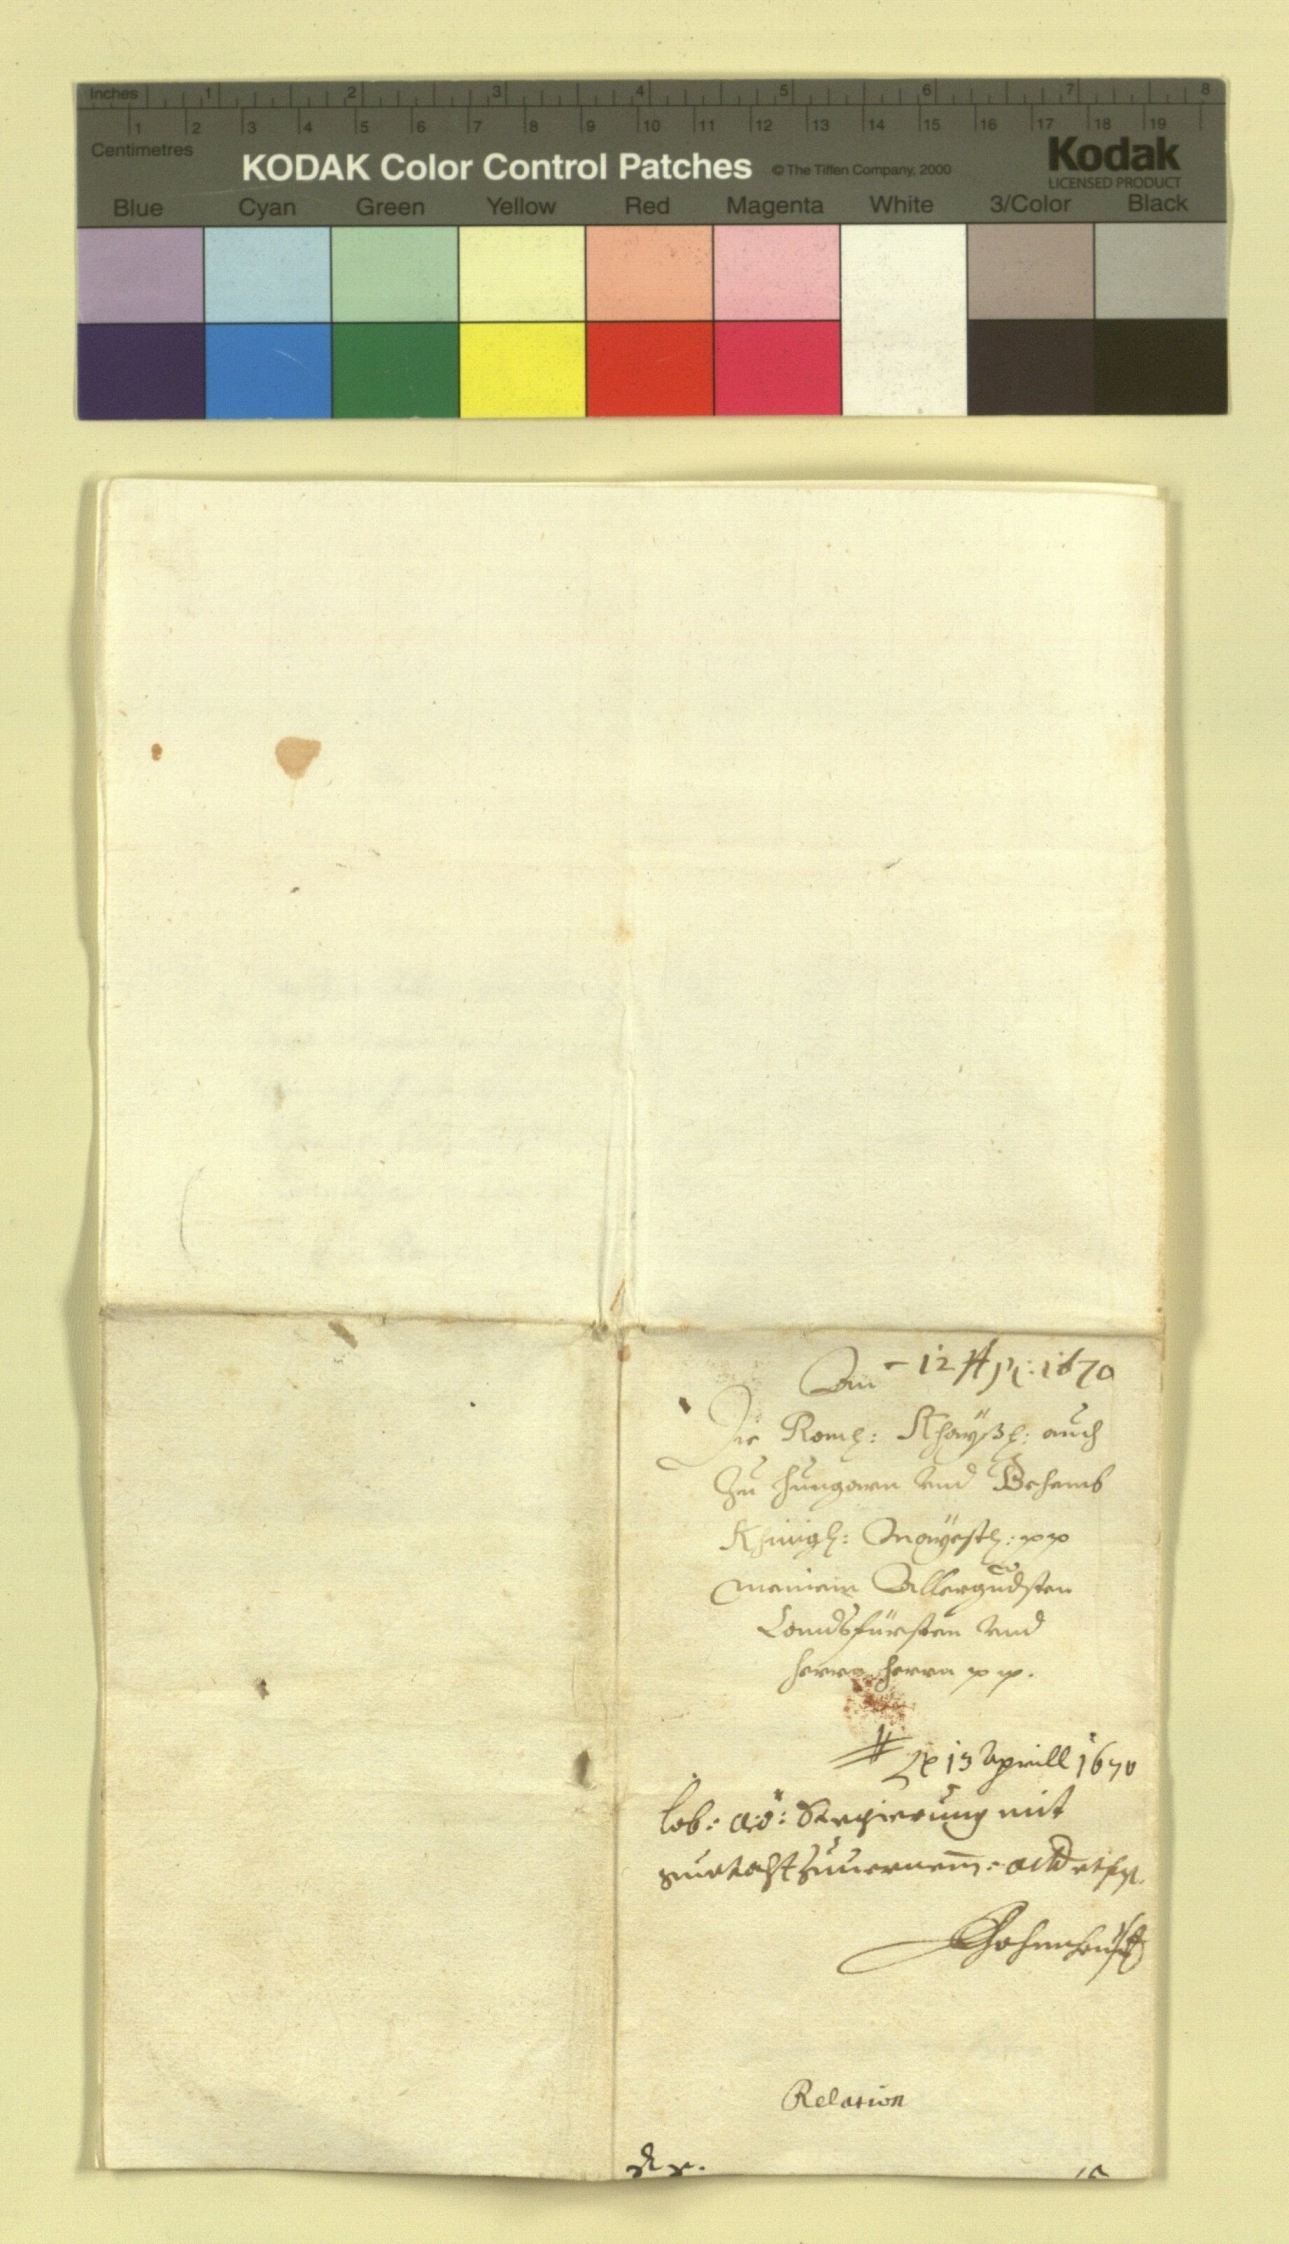 Inches 1 2 3 4 5 6 7 8
1 2 3 4 5 6 7 8 9 10 11 12 13 14 15 16 17 18 19
Centimetres
KODAK Color Control Patches © The Tiffen Company, 2000 Kodak
LICENSED PRODUCT
Blue Cyan Green Yellow Red Magenta White 3/Color Black
An 12 Apr: 1670
Die Röm: Khayßl: auch
Zu Hungarn vnd Behemb
Khünigl: Mayestl:
meinem Allergndsten
Landsfürsten vnd
Herrn Herrn
13 Aprill 1670
Lob: Regierung mit
Relation